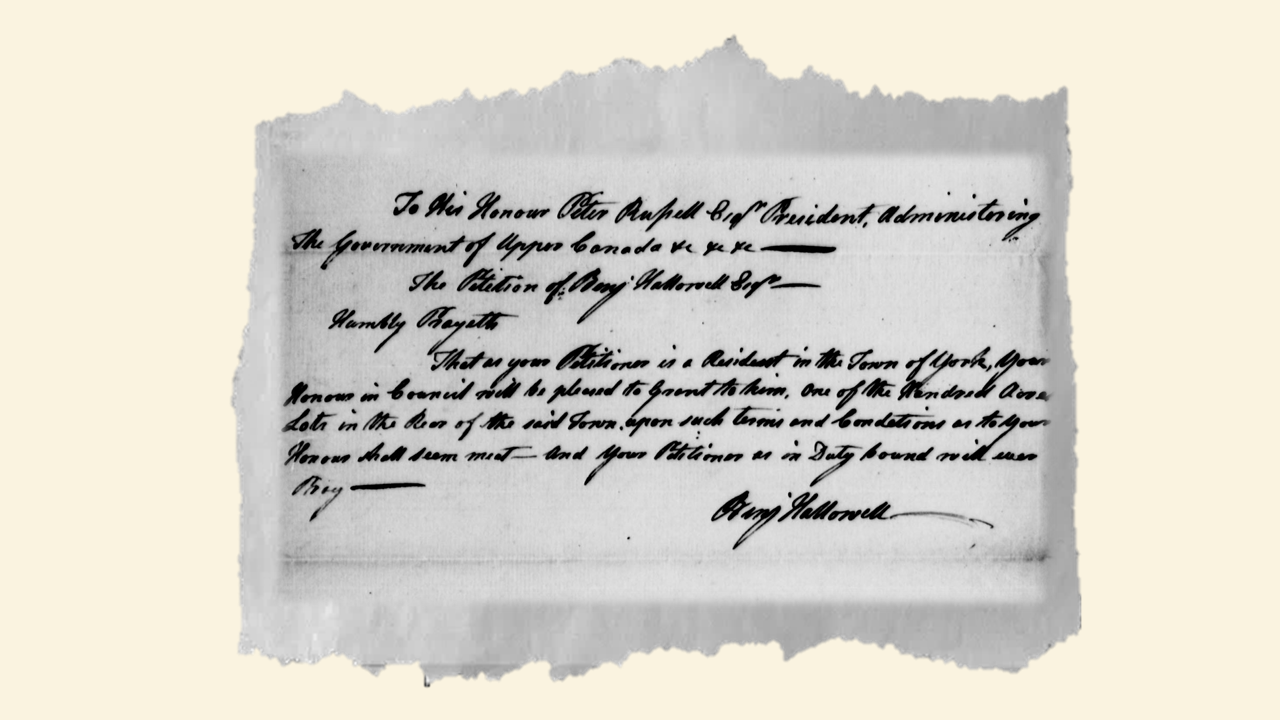 To His Honour Peter Russell Esqr President, Administering
The Government of Upper Canada &c &c &c —
The Petition of Benj Hallowell Esqr —
Humbly Prayeth
That as your Petitioner is a Resident in the Town of York, Your
Honour in Council will be pleased to Grant to him, One of the Hundred Acre
Lots in the Rear of the said Town, upon such terms and Conditions as to Your
Honour shall seem meet — And Your Petitioner as in Duty bound will ever
Pray —
Benj Hallowell